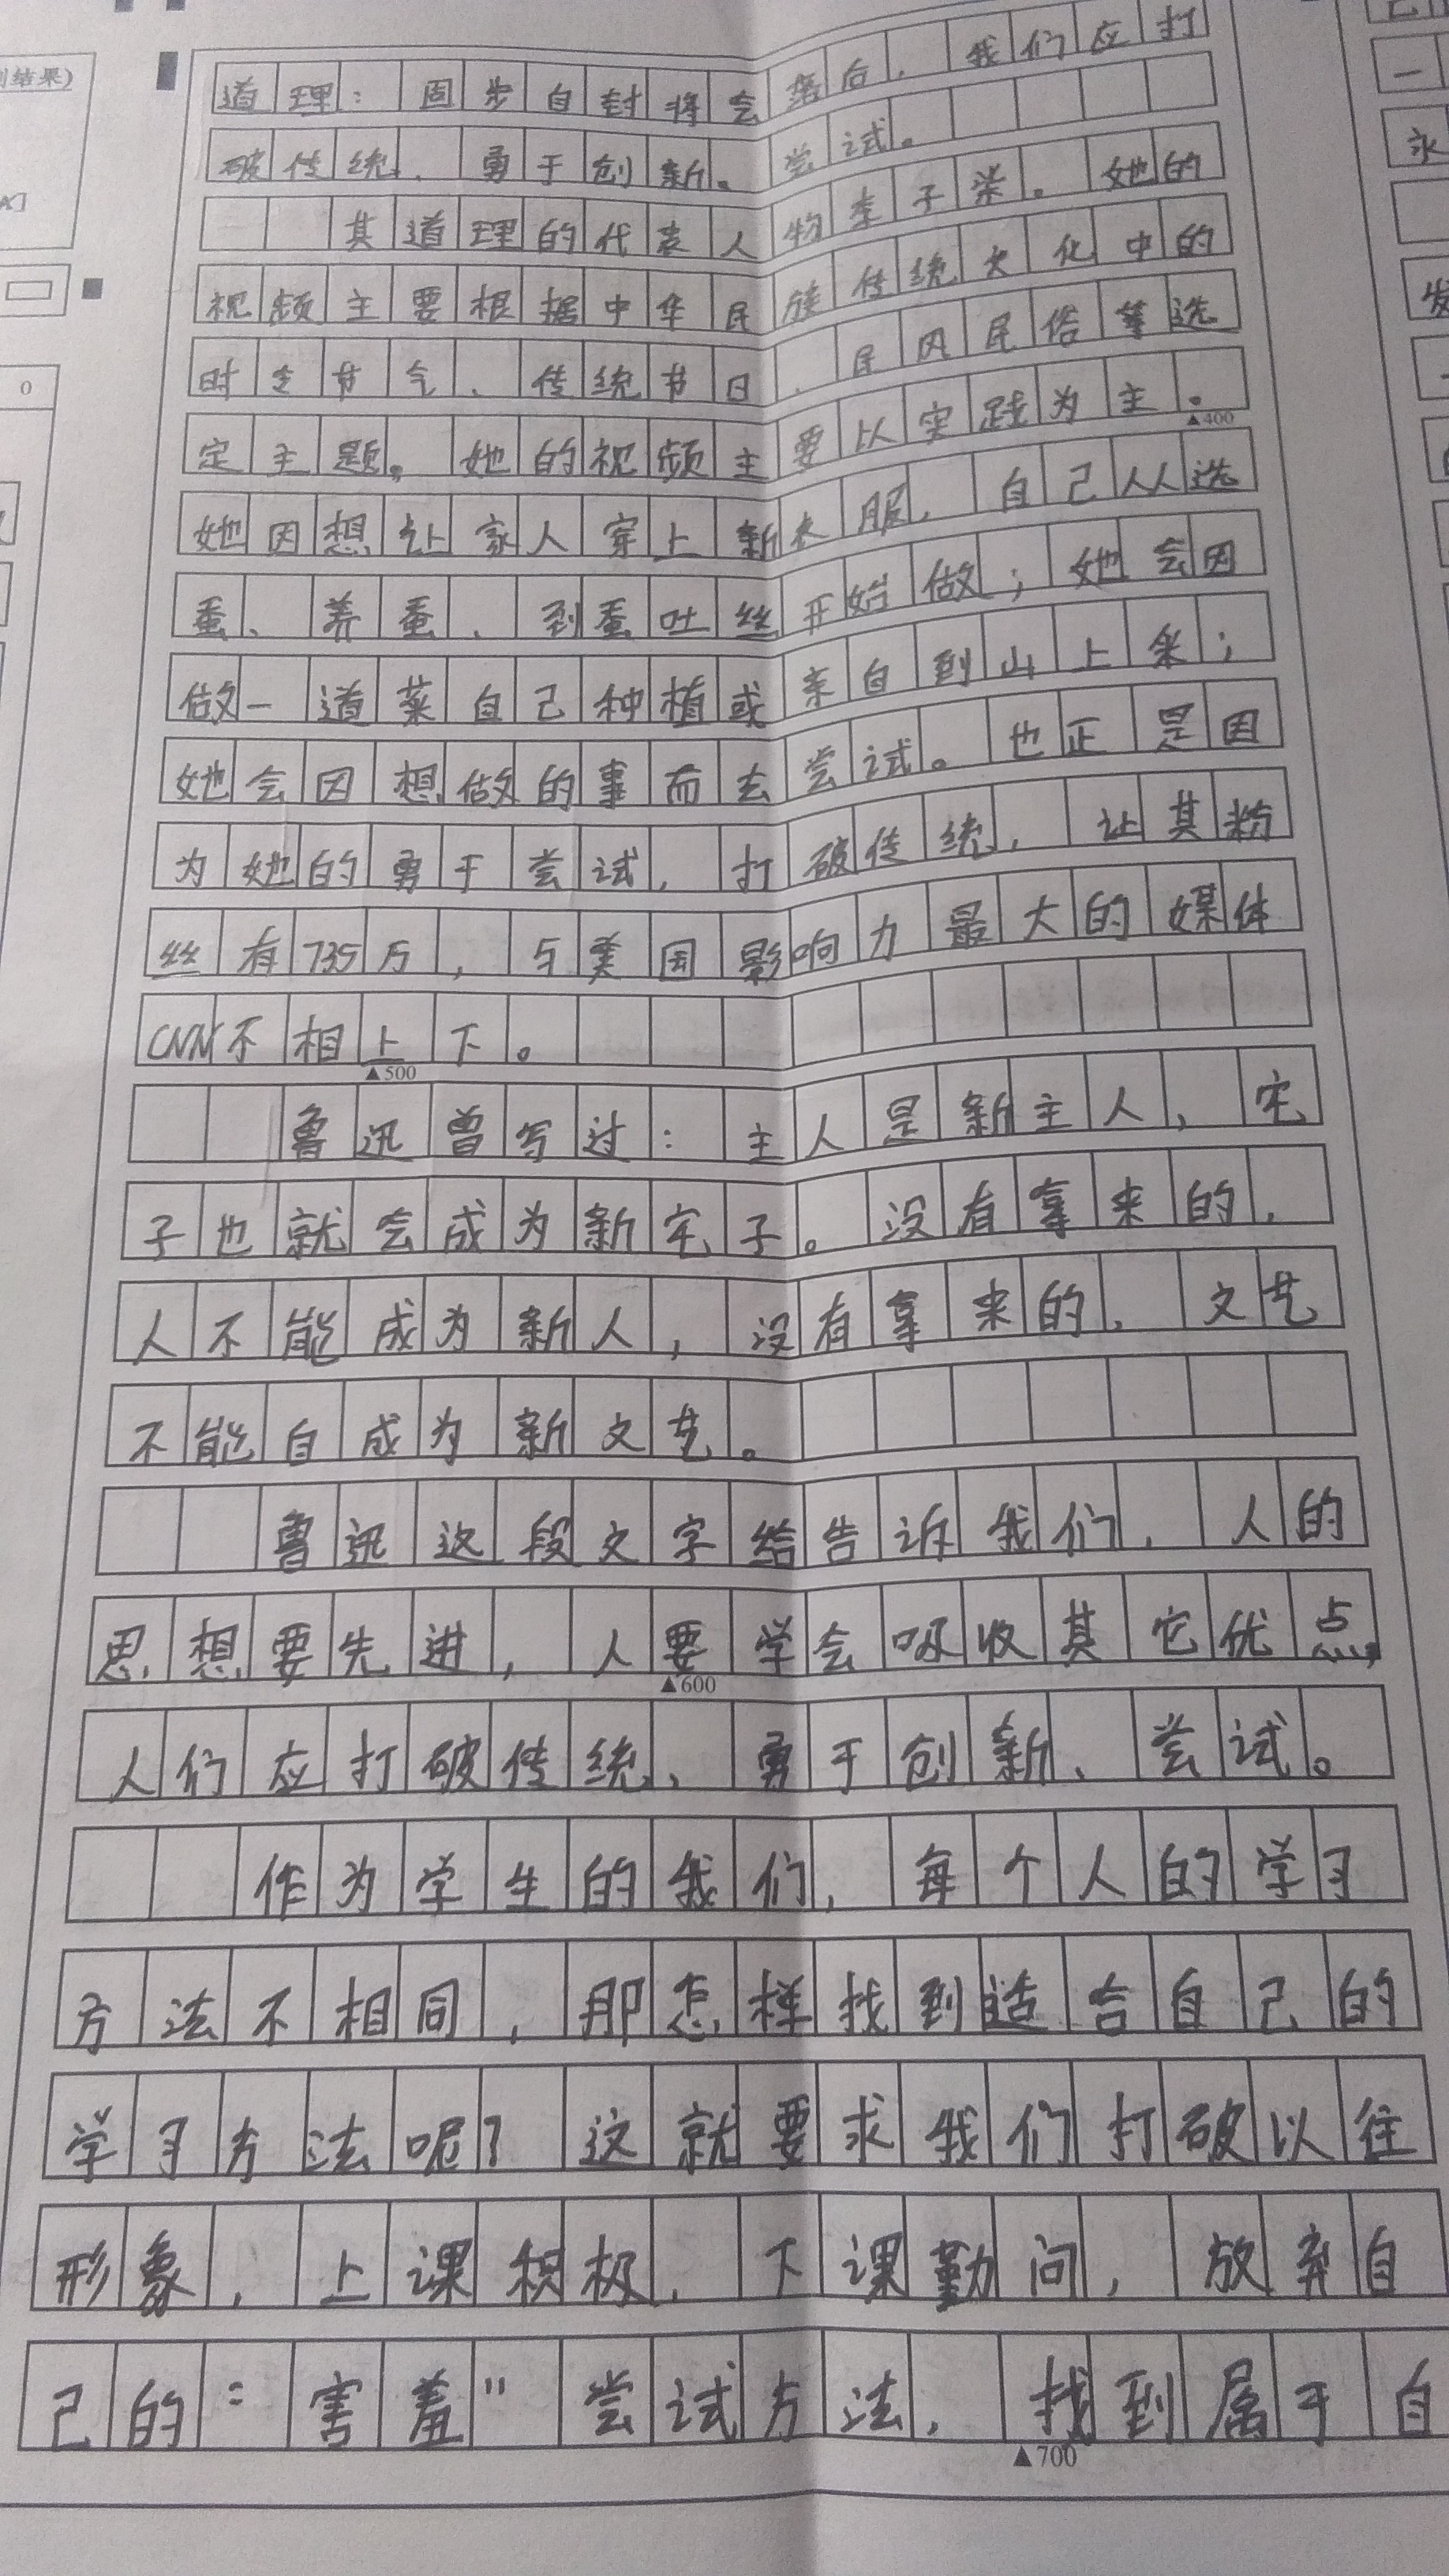 道理：固步自封将会落后，我们应打
破传统、勇于创新。尝试。
其道理的代表人物李子柒。她的
视频主要根据中华民族传统文化中的
时令节气、传统节日、民风民俗等选
定主题。她的视频主要以实践为主。
▲400
她因想让家人穿上新衣服，自己从选
蚕、养蚕、到蚕吐丝开始做；她会因
做一道菜自己种植或亲自到山上采；
她会因想做的事而去尝试。也正是因
为她的勇于尝试，打破传统，让其粉
丝有735万，与美国影响力最大的媒体
CNN不相上下。
▲500
鲁迅曾写过：主人是新主人，宅
子也就会成为新宅子。没有拿来的，
人不能成为新人，没有拿来的，文艺
不能自成为新文艺。
鲁迅这段文字给告诉我们，人的
思想要先进，人要学会吸收其它优点，
▲600
人们应打破传统、勇于创新、尝试。
作为学生的我们，每个人的学习
方法不相同，那怎样找到适合自己的
学习方法呢？这就要求我们打破以往
形象，上课积极，下课勤问，放弃自
己的“害羞”尝试方法，找到属于自
▲700